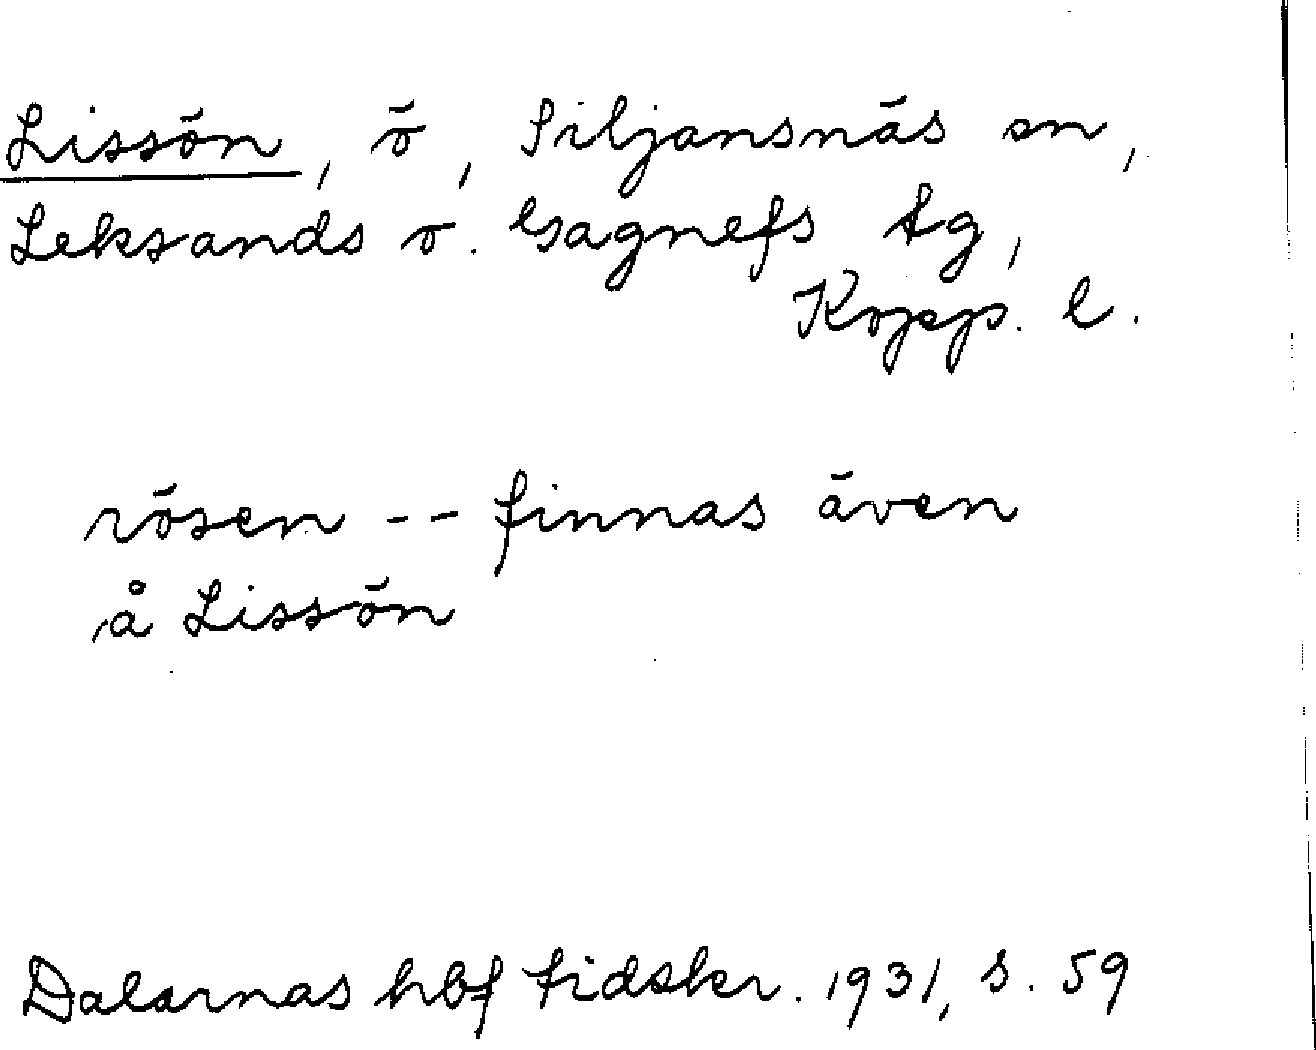 Lissön, ö, Siljansnäs sn,
Leksands o. Gagnefs tg,
Kopp. l.
rösen -- finnas även
å Lissön
Dalarnas hbf tidskr. 1931, s. 59